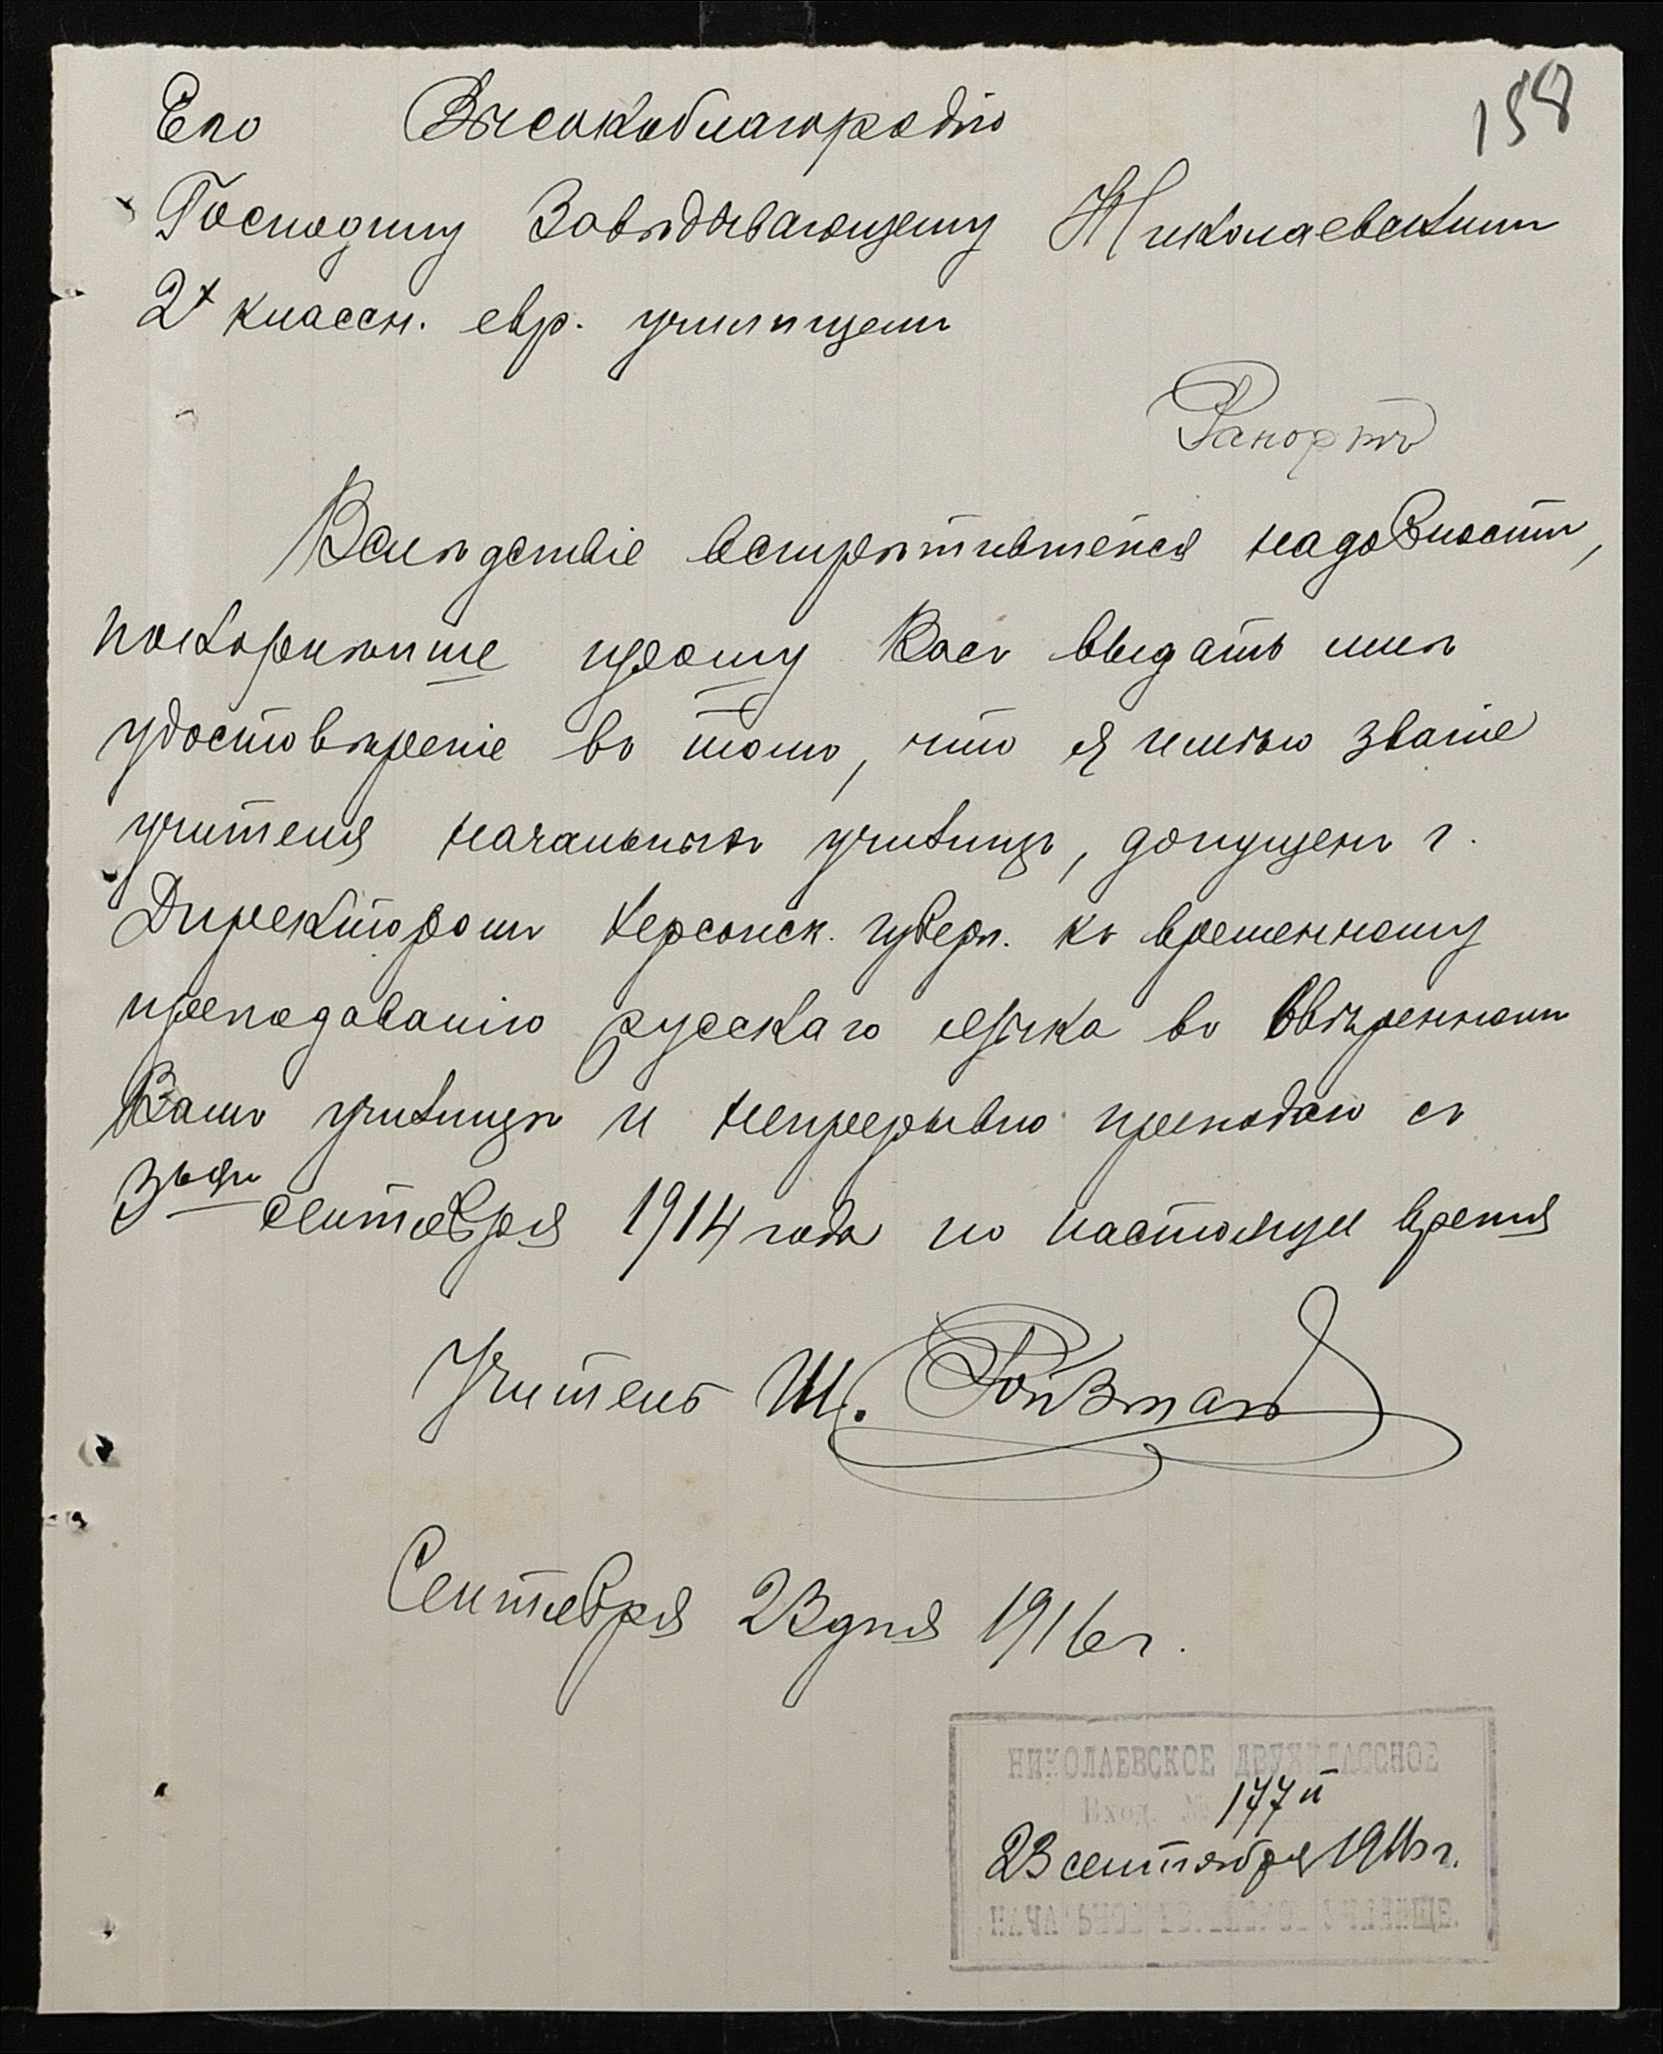 158
Его Высокоблагородію
Господину Завѣдывающему Николаевскимъ
2х классн. евр. училищемъ
Рапортъ
Вслѣдствіе встрѣтившейся надобности,
покорнѣйше прошу Васъ выдать мнѣ
удостовѣреніе въ томъ, что я имѣю званіе
учителя начальныхъ училищъ, допущенъ г.
Директоромъ Херсонск. губерн. къ временному
преподаванію русскаго языка во ввѣренномъ
Вамъ училищѣ и непрерывно преподаю съ
3ьяго сентября 1914 года по настоящее время
Учитель Ш. Ройзманъ
Сентября 23 дня 1916 г.
НИКОЛАЕВСКОЕ ДВУХКЛАССНОЕ
Вход. № 177й
23 сентября 1916 г.
НАЧАЛЬНОЕ ЕВРЕЙСКОЕ УЧИЛИЩЕ.